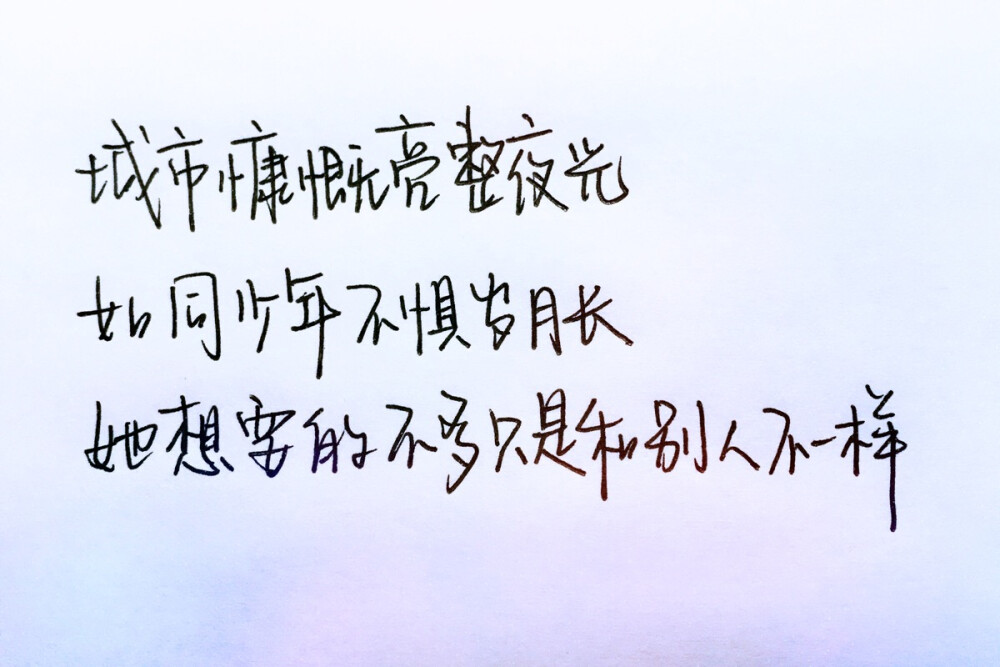 城市慷慨亮整夜光
如同少年不惧岁月长
她想要的不多只是和别人不一样